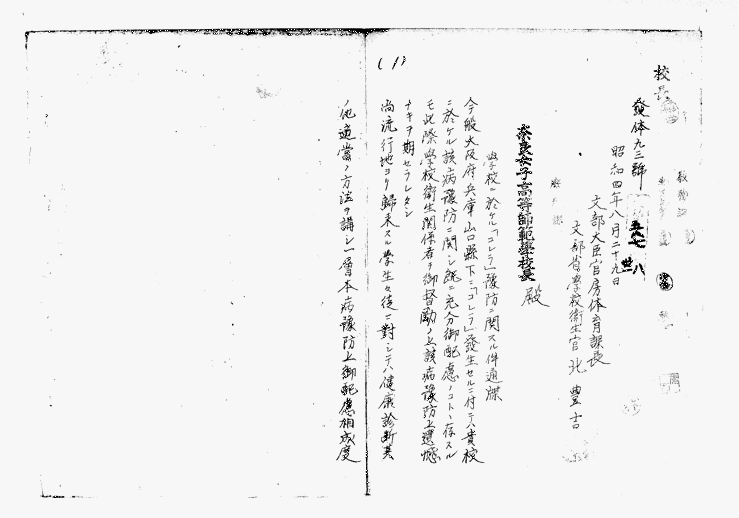 (1)
校長
發体九三號
昭和四年八月二十九日
文部大臣官房体育課長
文部省學校衛生官 北 豊吉
奈良女子高等師範學校長 殿
學校ニ於ケル「コレラ」豫防ニ関スル件通牒
今般大阪府兵庫山口縣下ニ「コレラ」發生セルニ付テハ貴校
ニ於ケル該病豫防ニ関シ既ニ充分御配慮ノコトト存スル
モ此際學校衛生関係者ヲ御督勵ノ上該病豫防上遺憾
ナキヲ期セラレタシ
尚流行地ヨリ歸来スル學生々徒ニ對シテハ健康診断其
ノ他適當ノ方法ヲ講シ一層本病豫防上御配慮相成度